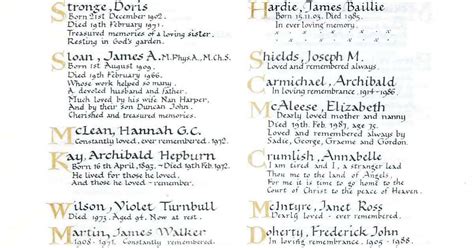 Stronge, Doris
Born 21st December 1902.
Died 19th February 1971.
Treasured memories of a loving sister.
Resting in God's garden.
Sloan, James A., M.Phys.A., M.Ch.S.
Born 1st August 1909.
Died 19th February 1966.
Whose thoughts helped so many.
A, devoted husband and father.
Much loved by his wife Nan Harper,
And by their son Duncan John.
Cherished and treasured memories.
McLean, Hannah G.C.
Constantly loved, ever remembered. 1972.
Kay, Archibald Hepburn
Born 16th April, 1893. ~ Died 19th Feb. 1972.
He lived for those he loved.
And those he loved ~ remember.
Wilson, Violet Turnbull
Died 1973. Aged 94. Now at rest.
Martin, James Walker
1908 - 1971. Constantly remembered.
Hardie, James Baillie
Born 15.11.03. Died 1985.
In ever loving memory.
Shields, Joseph M.
Loved and remembered always.
Carmichael, Archibald
In loving remembrance. 1914 - 1986.
McAleese, Elizabeth
Dearly loved mother and nanny
Died 19th Feb 1987, age 75.
Loved and remembered always by
Sadie, George, Graeme and Gordon.
Crumlish, Annabelle
I am tired and I, a stranger lead
Thou me to the land of Angels
For me it is time to go home to the
Court of Christ to the peace of Heaven.
McIntyre, Janet Ross
Dearly loved - ever remembered.
Doherty, Frederick John
In loving remembrance. 1905 - 1988.